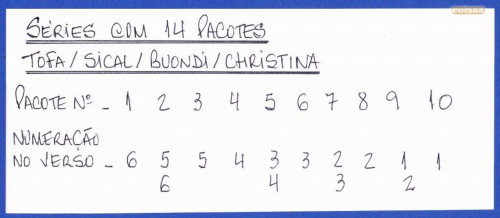 SÉRIES COM 14 PACOTES
TOFA/SICAL/BUONDI/CHRISTINA
PACOTE Nº - 1 2 3 4 5 6 7 8 9 10
NUMERAÇÃO
NO VERSO - 6 5 5 4 3 3 2 2 1 1
6 4 3 2